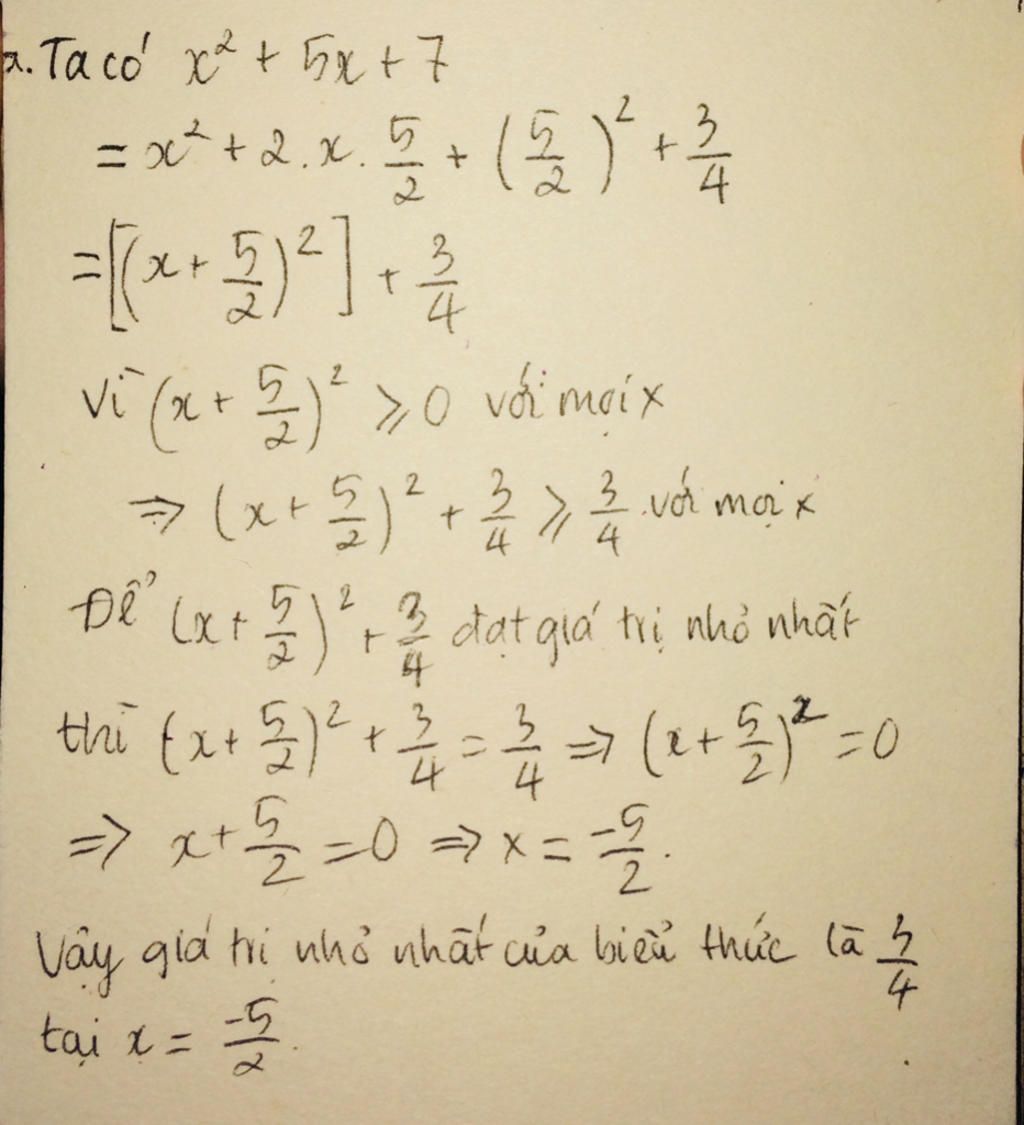 a. Ta có x² + 5x + 7
= x² + 2.x. 5/2 + (5/2)² + 3/4
= [(x + 5/2)²] + 3/4
Vì (x + 5/2)² ⩾ 0 với mọi x
⇒ (x + 5/2)² + 3/4 ⩾ 3/4 với mọi x
Để (x + 5/2)² + 3/4 đạt giá trị nhỏ nhất
thì (x + 5/2)² + 3/4 = 3/4 ⇒ (x + 5/2)² = 0
⇒ x + 5/2 = 0 ⇒ x = -5/2.
Vậy giá trị nhỏ nhất của biểu thức là 3/4
tại x = -5/2.